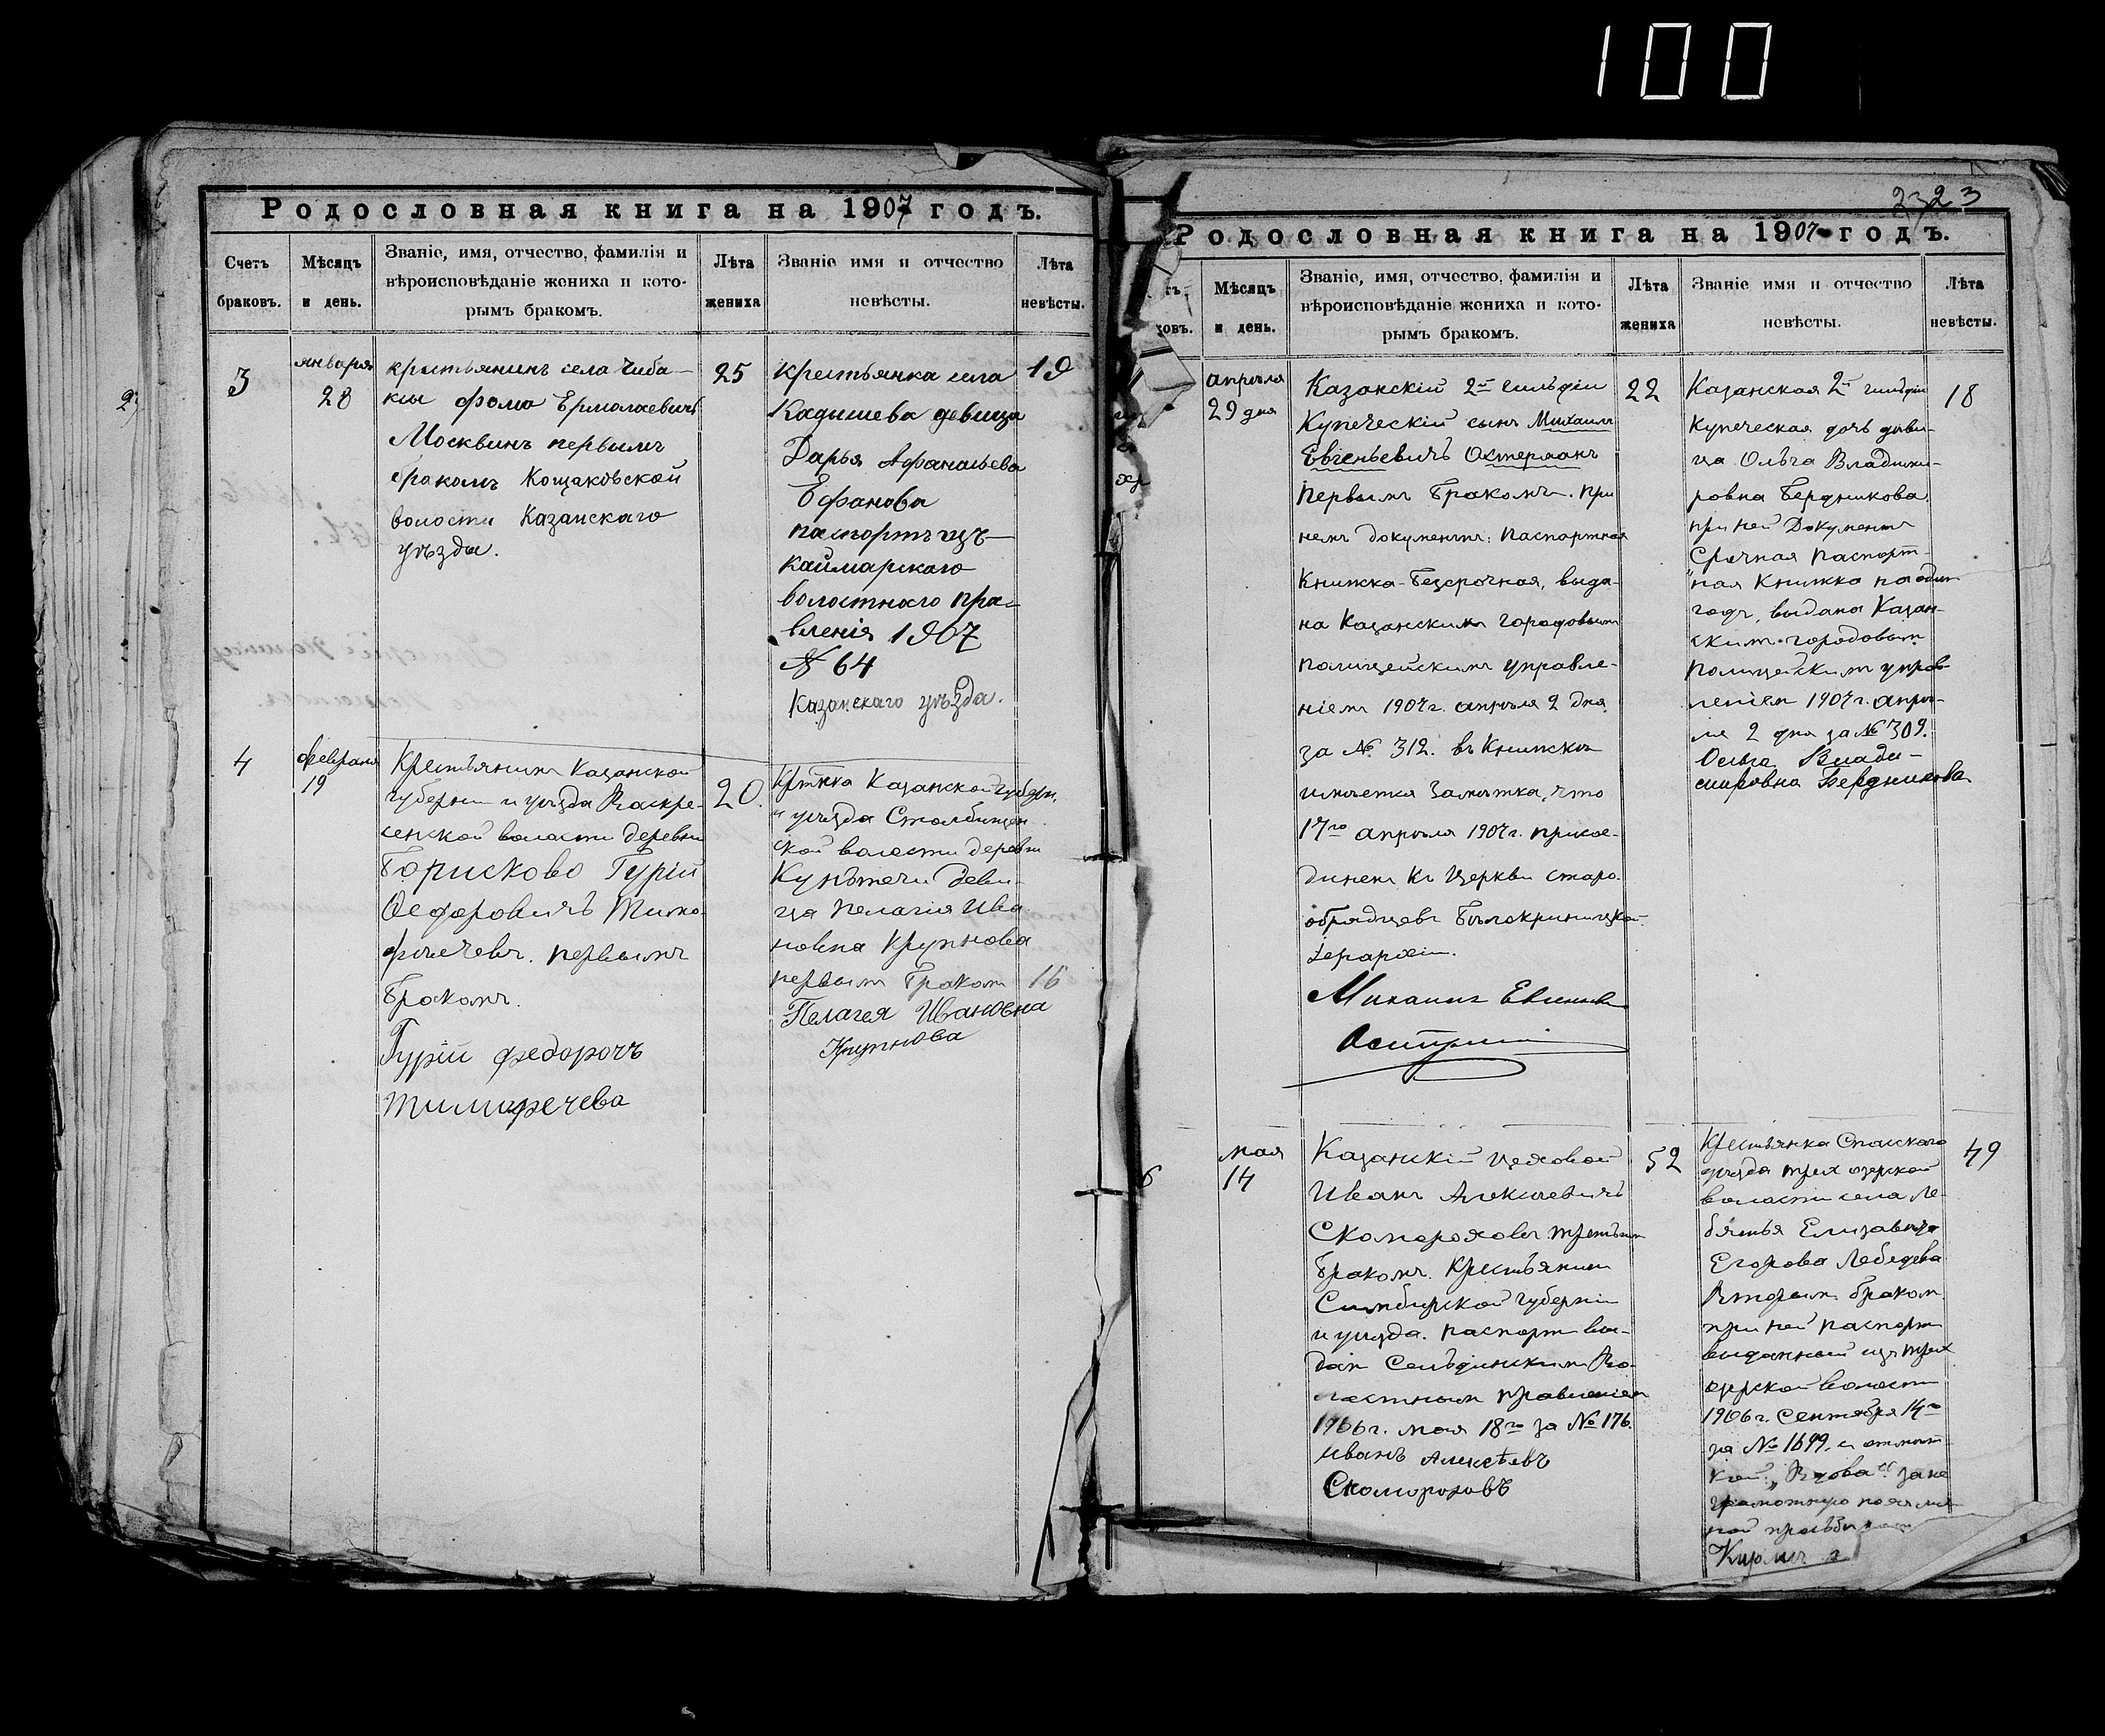 100
Родословная книга на 1907 годъ.
Счетъ браковъ.
Мѣсяцъ и день.
Званіе, имя, отчество, фамилія и
вѣроисповѣданіе жениха и кото-
рымъ бракомъ.
Лѣта жениха
Званіе имя и отчество
невѣсты.
Лѣта невѣсты.
3
января
28
крестьянинъ села Чиба-
ксы Фома Ермолаевичъ
Москвинъ первымъ
бракомъ Кощаковской
волости Казанскаго
уѣзда.
25
крестьянка села
Кадышева девица
Дарья Афанасьева
Ефанова
паспортъ изъ
Каймарскаго
волостнаго пра-
вленія 1907
№ 64
Казанскаго уѣзда.
19
4
февраля
19
Крестьянинъ Казанской
губерніи и уѣзда Васкре-
сенской воласти деревни
Борисково Гурій
Ѳедоровичъ Тимо-
фѣечевъ. первымъ
бракомъ.
Гурій федорочъ
тимифечева
20.
Кртнка Казанской губерн.
и уѣзда Столбищен
ской воласти деревни
Деви-
ца Пелагія Ива
новна Крупнова
первым браком
Пелагея Ивановна
Крупнова
16
2323
Родословная книга на 1907 годъ.
Мѣсяцъ и день.
Званіе, имя, отчество, фамилія и
вѣроисповѣданіе жениха и кото-
рымъ бракомъ.
Лѣта жениха
Званіе имя и отчество
невѣсты.
Лѣта невѣсты.
апрѣля
29 дня
Казанскій 2й гильдіи
Купеческій сынъ Михаилъ
Евгеньевичъ Остерманъ
первымъ бракомъ. при
немъ документъ: паспортная
Книжка-безсрочная, выда-
на Казанскимъ городовым
полицейскимъ управле-
ніемъ 1907 г. апрѣля 2 дня
за № 312. въ Книжкѣ
имѣется Замѣтка, что
17го апрѣля 1907 г. присое-
диненъ Къ Церкви старо-
обрядцевъ Бѣлокриницкой
Іерархіи.
Михаилъ Евгеніев
Остерман
22
Казанская 2й гильдіи
Купеческая дочь деви-
ца Ольга Владими-
ровна Бердникова
при ней Документъ
Срочная паспорт-
ная Книжка на один
годъ, выдана Казан-
скимъ городовым
полицейскимъ управ
леніем 1907 г. апрѣ-
ля 2 дня за № 309.
Ольга Влади-
мировна Бердникова
18
6
мая
14
Казанскій цеховой
Иванъ Алексѣевичъ
Скомороховъ третьим
бракомъ. Крестьянин
Симбирской губерніи
и уѣзда. паспорт вы-
дан Сельдинским Во-
лостным правленіем
1906 г. мая 18го за № 176.
Иванъ Алексѣевъ
Скомороховъ
52
Крестьянка Спасскаго
уѣзда трех озерской
воласти села Ле-
бяжья Елизавета
Егорова Лебедева
Вторым браком
при ней паспорт
выданный изъ трех
озерской воласти
1906 г. Сентября 14го
за № 1699. и отмѣт-
кой: „Вдова“. за не
грамотную по ея лич
ной просьбы
49